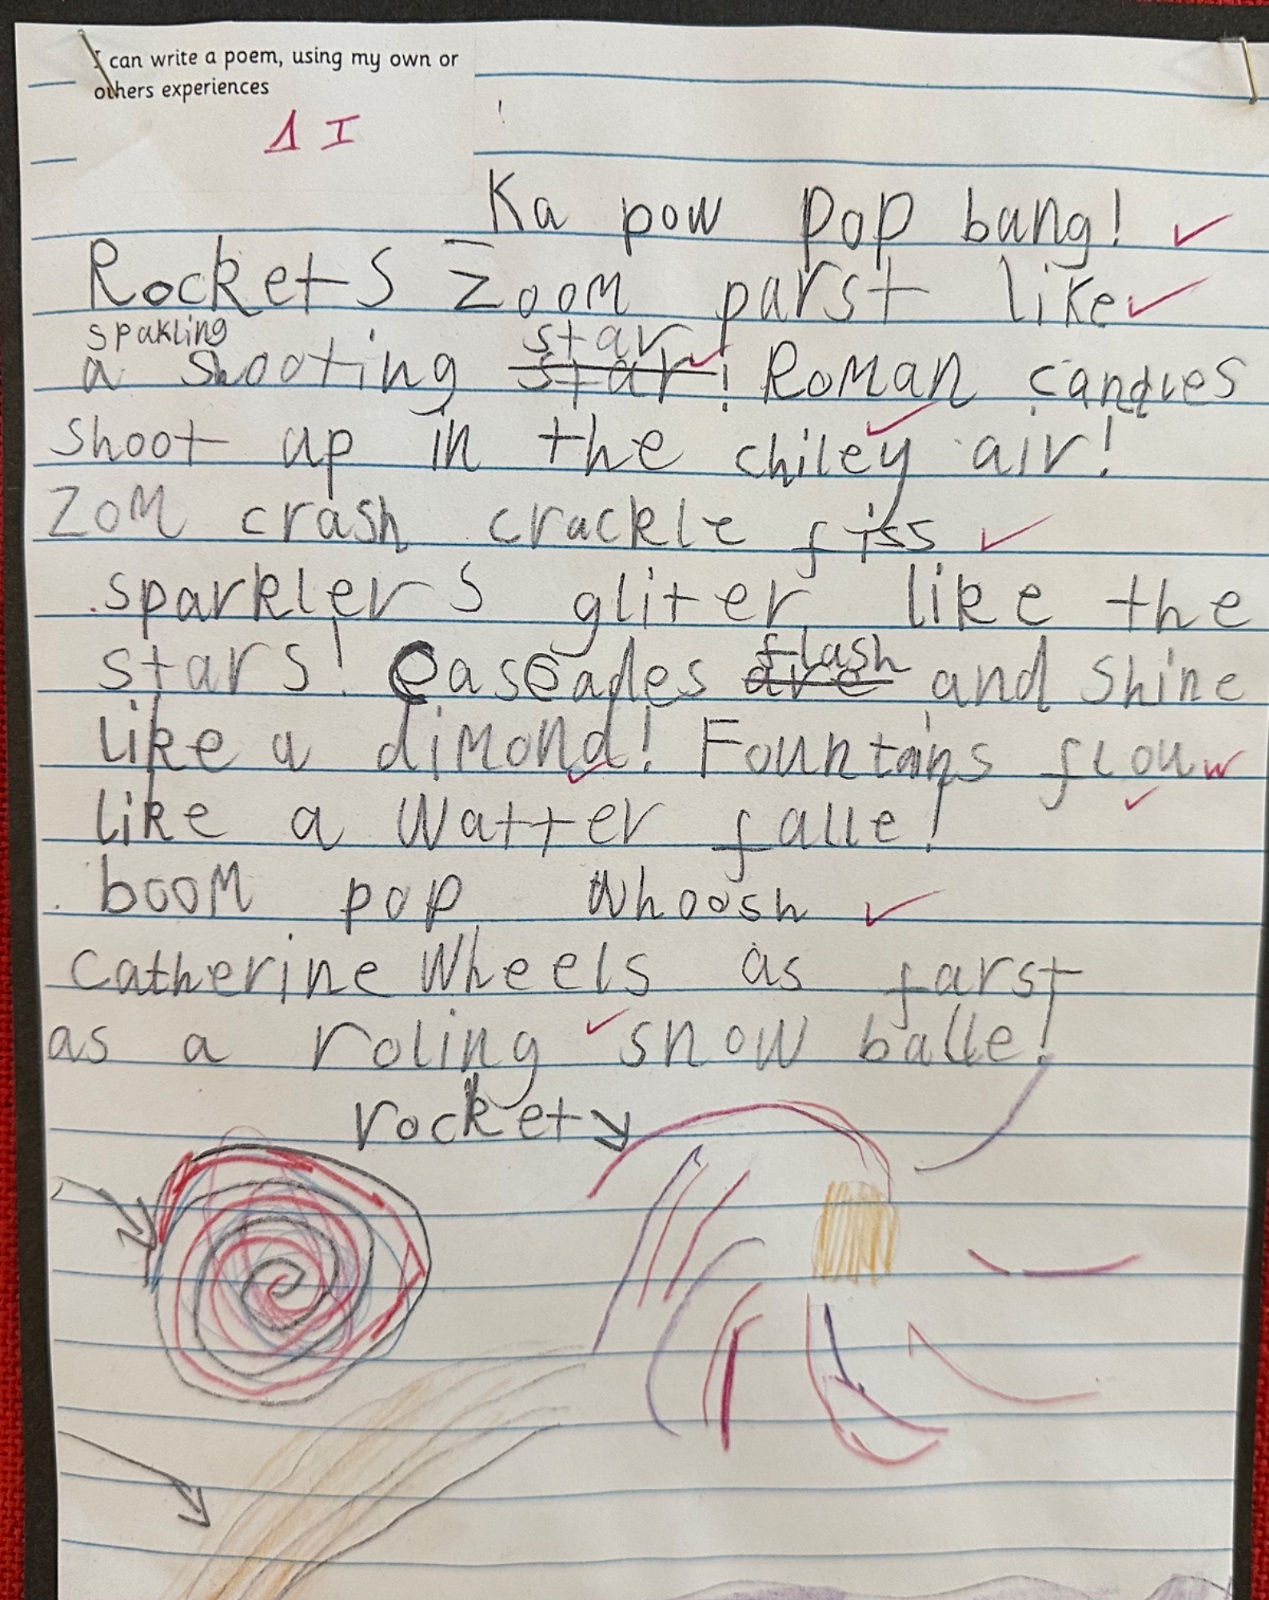 I can write a poem, using my own or
others experiences
1 I
Ka pow pop bang!
Rockets zoom parst like
spakling
star
a shooting star! Roman candles
shoot up in the chiley air!
zom crash crackle fiss
sparklers gliter like the
flash
stars! Cascades are and shine
like a dimond! Fountains flouw
like a Watter falle!
boom pop whoosh
catherine Wheels as farst
as a roling snow balle!
rocket